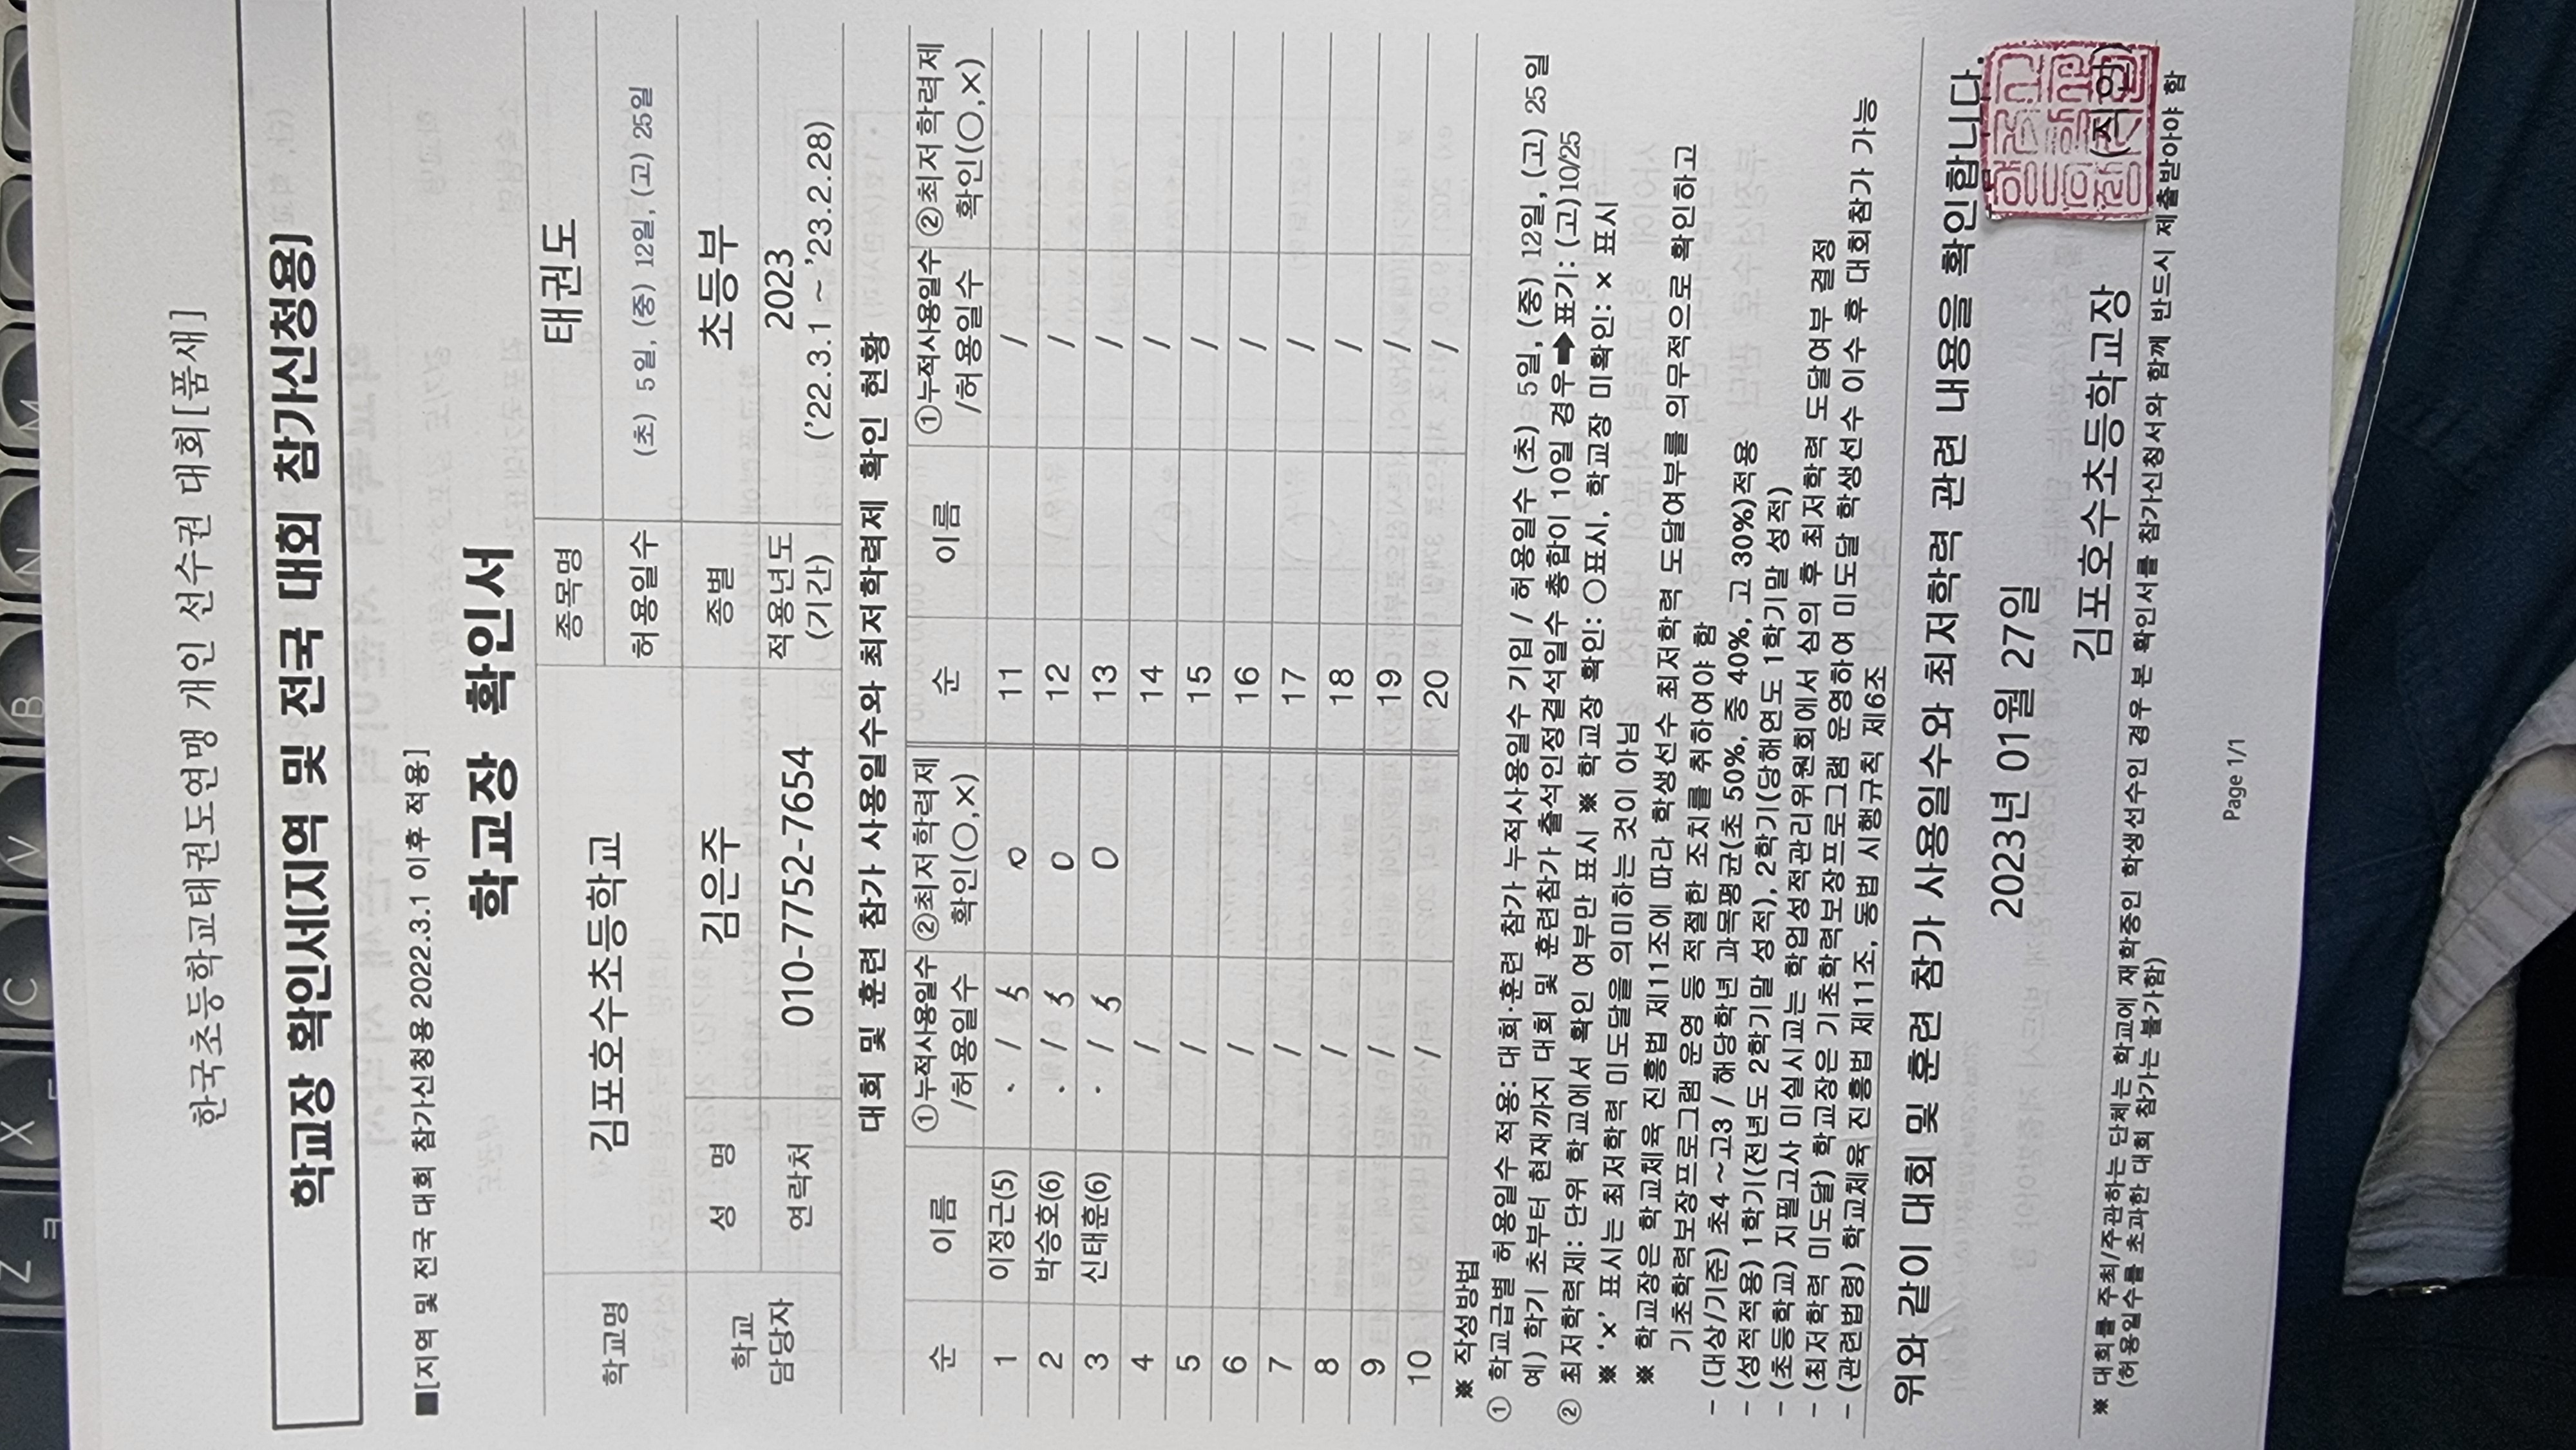 한국초등학교태권도연맹 개인 선수권 대회[품새]
학교장 확인서[지역 및 전국 대회 참가신청용]
■[지역 및 전국 대회 참가신청용 2022.3.1 이후 적용]
학교장 확인서
학교명 김포호수초등학교 종목명 태권도
허용일수 (초) 5일, (중) 12일, (고) 25일
학교 담당자 성 명 김은주 종별 초등부
연락처 010-7752-7654 적용년도 (기간) 2023 ('22.3.1 ~ '23.2.28)
대회 및 훈련 참가 사용일수와 최저학력제 확인 현황
순 이름 ①누적사용일수 /허용일수 ②최저학력제 확인(○,×) 순 이름 ①누적사용일수 /허용일수 ②최저학력제 확인(○,×)
1 이정근(5) · / 5 O 11 /
2 박승호(6) · / 5 O 12 /
3 신태훈(6) · / 5 O 13 /
4 / 14 /
5 / 15 /
6 / 16 /
7 / 17 /
8 / 18 /
9 / 19 /
10 / 20 /
※ 작성방법
① 학교급별 허용일수 적용: 대회·훈련 참가 누적사용일수 기입 / 허용일수 (초) 5일, (중) 12일, (고) 25일
예) 학기 초부터 현재까지 대회 및 훈련참가 출석인정결석일수 총합이 10일 경우➡표기: (고)10/25
② 최저학력제: 단위 학교에서 확인 여부만 표시 ※ 학교장 확인: ○표시, 학교장 미확인: × 표시
※ '×' 표시는 최저학력 미도달을 의미하는 것이 아님
※ 학교장은 학교체육 진흥법 제11조에 따라 학생선수 최저학력 도달여부를 의무적으로 확인하고
기초학력보장프로그램 운영 등 적절한 조치를 취하여야 함
- (대상/기준) 초4 ~고3 / 해당학년 과목평균(초 50%, 중 40%, 고 30%)적용
- (성적적용) 1학기(전년도 2학기말 성적), 2학기(당해연도 1학기말 성적)
- (초등학교) 지필고사 미실시교는 학업성적관리위원회에서 심의 후 최저학력 도달여부 결정
- (최저학력 미도달) 학교장은 기초학력보장프로그램 운영하여 미도달 학생선수 이수 후 대회참가 가능
- (관련법령) 학교체육 진흥법 제11조, 동법 시행규칙 제6조
위와 같이 대회 및 훈련 참가 사용일수와 최저학력 관련 내용을 확인합니다.
2023년 01월 27일
김포호수초등학교장 (직인)
※ 대회를 주최/주관하는 단체는 학교에 재학중인 학생선수인 경우 본 확인서를 참가신청서와 함께 반드시 제출받아야 함
(허용일수를 초과한 대회 참가는 불가함)
Page 1/1
Z X C V B N M
ㅋ ㅌ